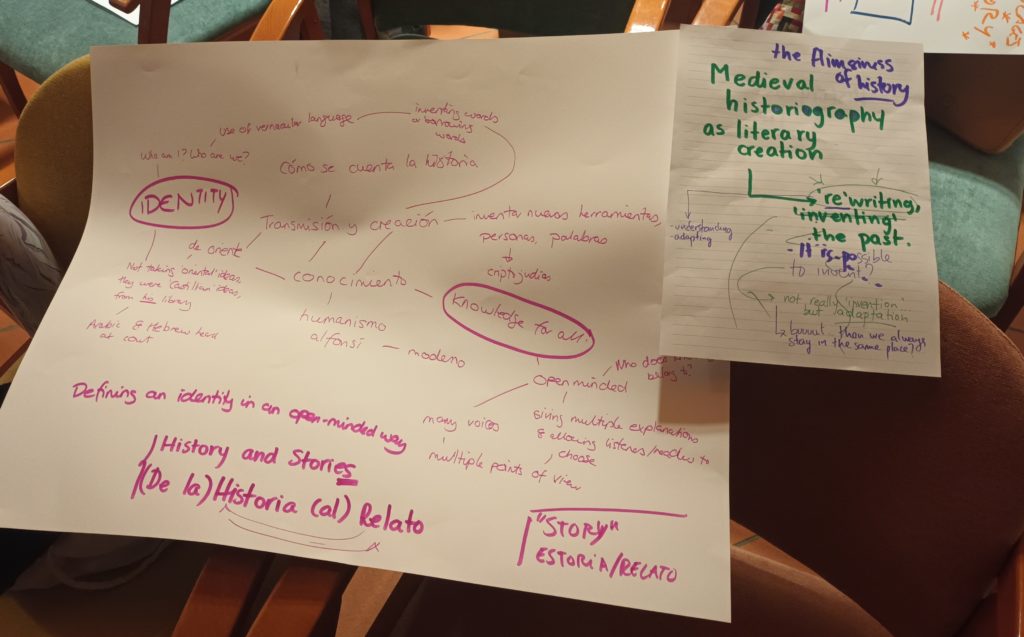 use of vernacular language
inventing words
or borrowing
words
Who am I? Who are we?
Cómo se cuenta la historia
IDENTITY
Transmisión y creación
inventa nuevos herramientas,
personas, palabras
criptojudíos
de oriente
conocimiento
Not taking 'oriental' ideas,
they were 'Castilian' ideas,
from his library
Arabic & Hebrew
at court
humanismo
alfonsí
moderno
Knowledge for all.
open minded
Who does
belong to?
many voices
multiple points of view
giving multiple explanations
& allowing listeners/reader to
choose
Defining an identity in an open-minded way
History and Stories
(De la) Historia (al) Relato
"STORY"
ESTORIA/RELATO
the flimsiness
of history
Medieval
historiography
as literary
creation
're'writing,
'inventing'
the past.
- understanding
- adapting
- It is possible
to invent?
not really 'invention'
but adaptation
than we always
stay in the same place?